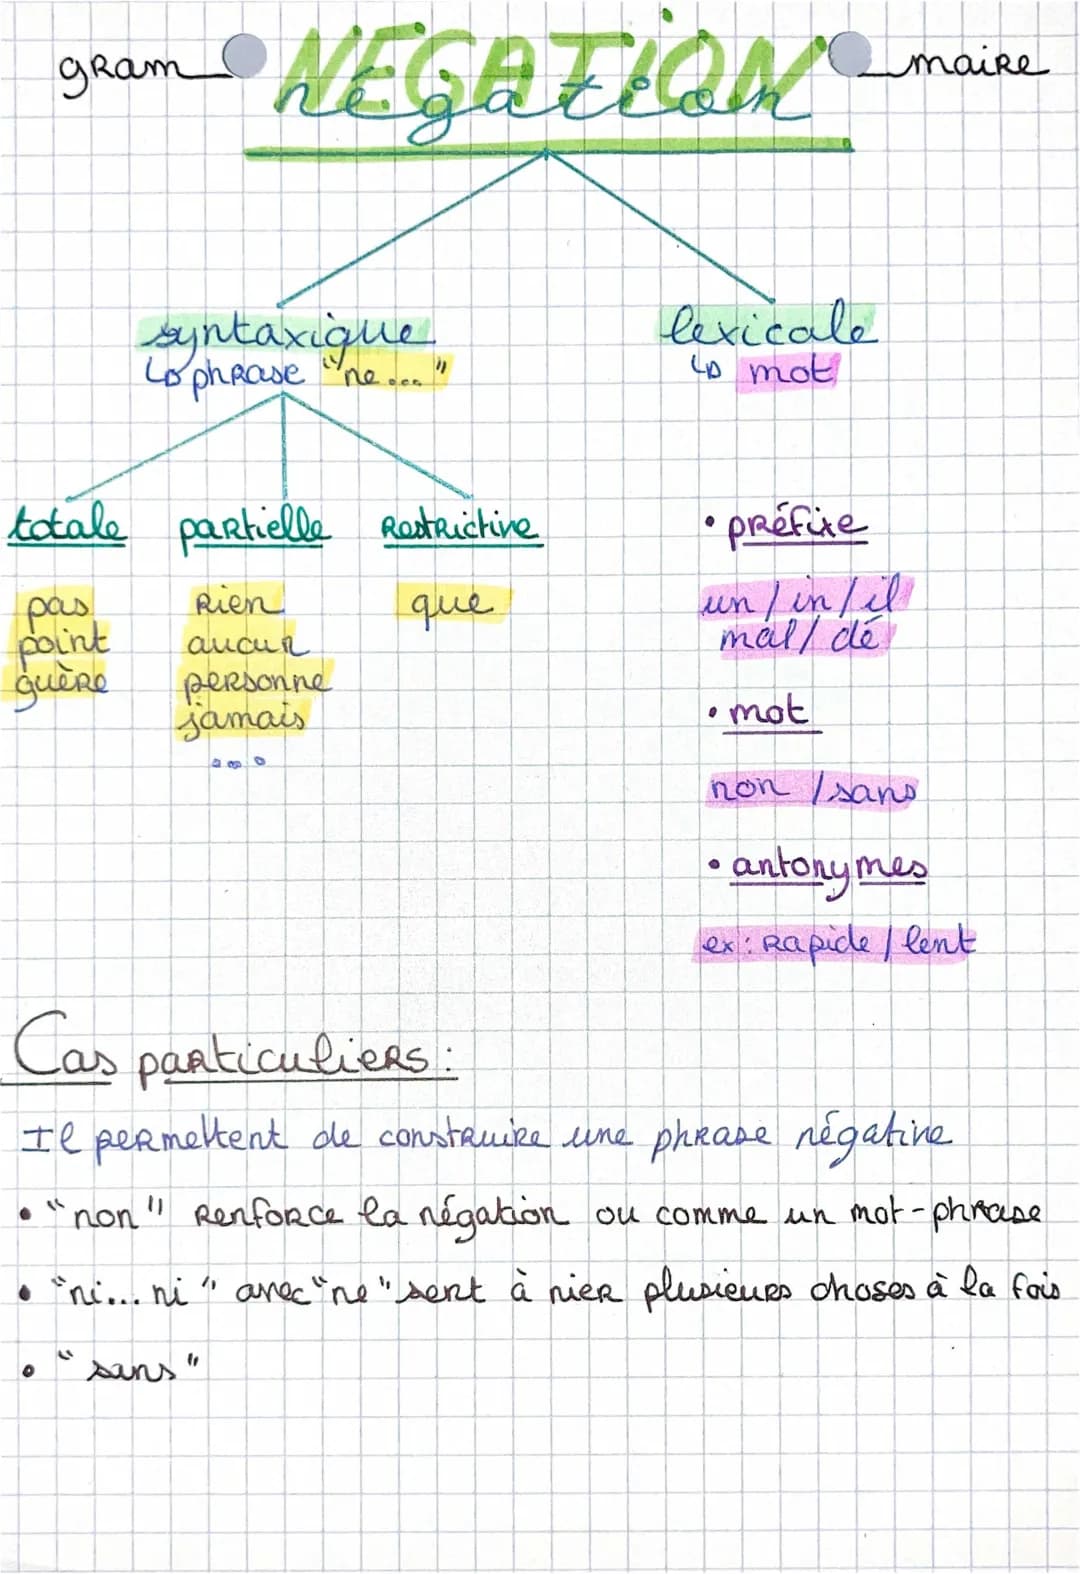 gram maire
NEGATION
négation
syntaxique
↳ phrase "ne..."
lexicale
↳ mot
totale
pas
point
guère
partielle
Rien
aucun
personne
jamais
...
Restrictive
que
• préfixe
un / in / il
mal / dé
• mot
non / sans
• antonymes
ex : Rapide / lent
Cas particuliers :
Il permettent de construire une phrase négative
• "non" Renforce la négation ou comme un mot-phrase
• "ni... ni" avec "ne" sert à nier plusieurs choses à la fois
• "sans"